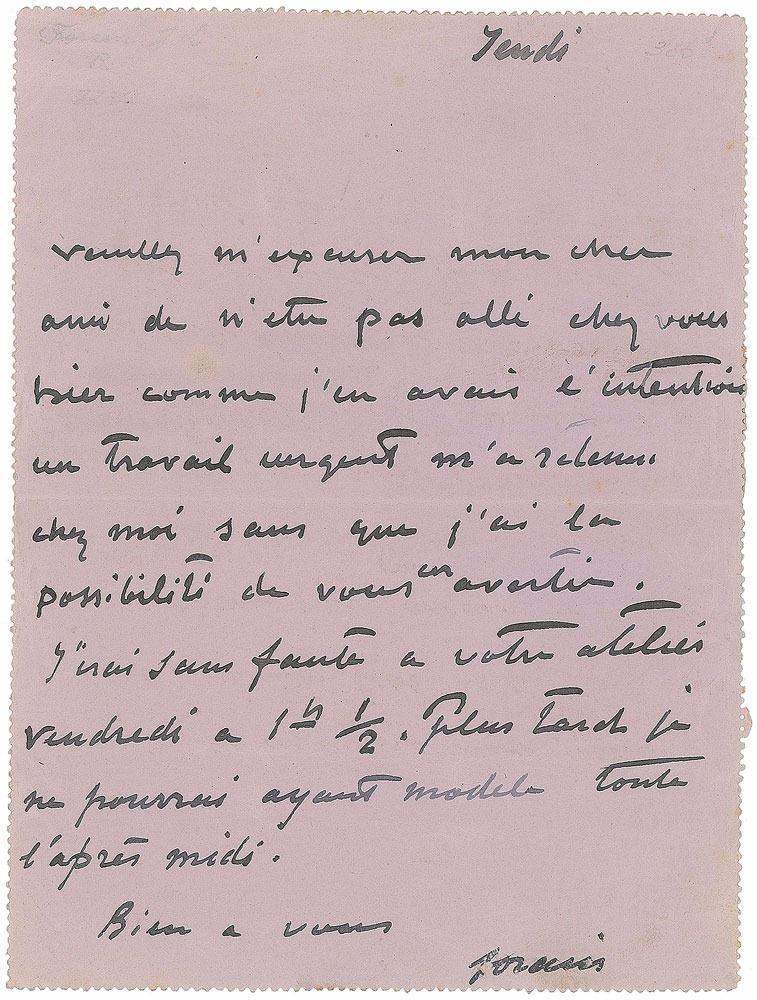 Jeudi
veuillez m'excuser mon cher
ami de n'etre pas allé chez vous
hier comme j'en avais l'intention
un travail urgent m'a retenu
chez moi sans que j'ai la
possibilité de vous en avertir.
J'irai sans faute a votre atelier
vendredi a 1h 1/2. Plus tard je
ne pourrai ayant modele toute
l'après midi.
Bien a vous
forain